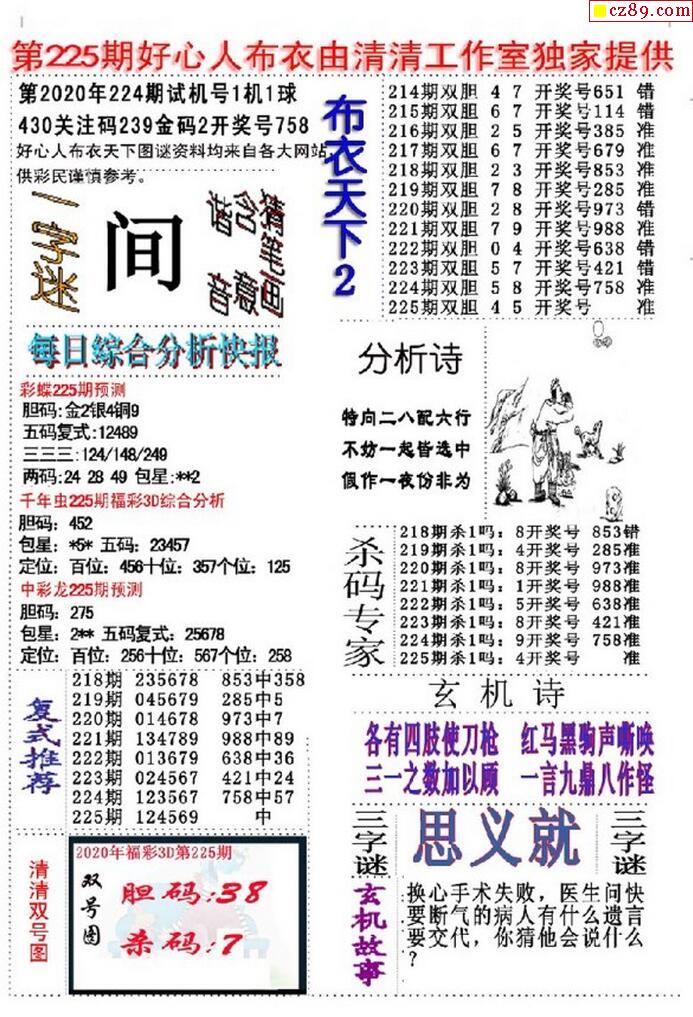 cz89.com
第225期好心人布衣由清清工作室独家提供
第2020年224期试机号1机1球
430关注码239金码2开奖号758
好心人布衣天下图谜资料均来自各大网站,
供彩民谨慎参考。
一字迷
间
谐音
含意
猜笔画
每日综合分析快报
彩蝶225期预测
胆码:金2银4铜9
五码复式:12489
三三三:124/148/249
两码:24 28 49 包星:**2
千年虫225期福彩3D综合分析
胆码: 452
包星: *5* 五码: 23457
定位: 百位: 456十位: 357个位: 125
中彩龙225期预测
胆码: 275
包星: 2** 五码复式: 25678
定位: 百位: 256十位: 567个位: 258
复式推荐
218期 235678 853中358
219期 045679 285中5
220期 014678 973中7
221期 134789 988中89
222期 013679 638中36
223期 024567 421中24
224期 123567 758中57
225期 124569 中
清清双号图
2020年福彩3D第225期
双号图
胆码:38
杀码:7
布衣天下2
214期双胆 4 7 开奖号651 错
215期双胆 6 7 开奖号114 错
216期双胆 2 5 开奖号385 准
217期双胆 6 7 开奖号679 准
218期双胆 2 3 开奖号853 准
219期双胆 7 8 开奖号285 准
220期双胆 2 8 开奖号973 错
221期双胆 7 9 开奖号988 准
222期双胆 0 4 开奖号638 错
223期双胆 5 7 开奖号421 错
224期双胆 5 8 开奖号758 准
225期双胆 4 5 开奖号 准
分析诗
特向二八配六行
不妨一起皆选中
假作一夜份非为
杀码专家
218期杀1吗: 8开奖号 853错
219期杀1吗: 4开奖号 285准
220期杀1吗: 8开奖号 973准
221期杀1吗: 1开奖号 988准
222期杀1吗: 5开奖号 638准
223期杀1吗: 8开奖号 421准
224期杀1吗: 9开奖号 758准
225期杀1吗: 4开奖号 准
玄机诗
各有四肢使刀枪 红马黑驹声嘶唤
三一之数加以顾 一言九鼎八作怪
三字谜
思义就
三字谜
玄机故事
换心手术失败，医生问快
要断气的病人有什么遗言
要交代，你猜他会说什么
？